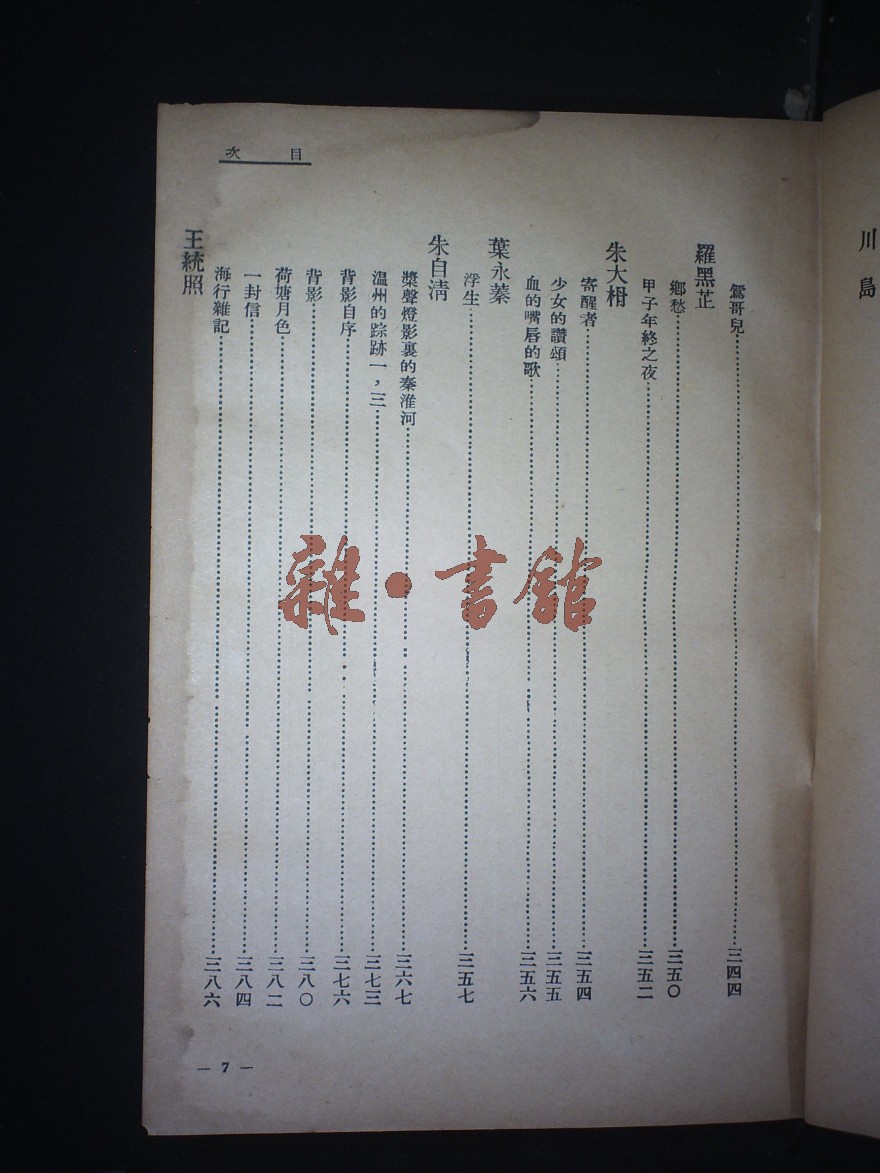 川島
目次
鴛哥兒……三四四
羅黑芷
鄉愁……三五〇
甲子年終之夜……三五二
朱大枬
寄醒者……三五四
少女的讚頌……三五五
血的嘴唇的歌……三五六
葉永蓁
浮生……三五七
朱自清
槳聲燈影裏的秦淮河……三六七
温州的踪跡一，三……三七三
背影自序……三七六
背影……三八〇
荷塘月色……三八二
一封信……三八四
海行雜記……三八六
王統照
— 7 —
雜·書館